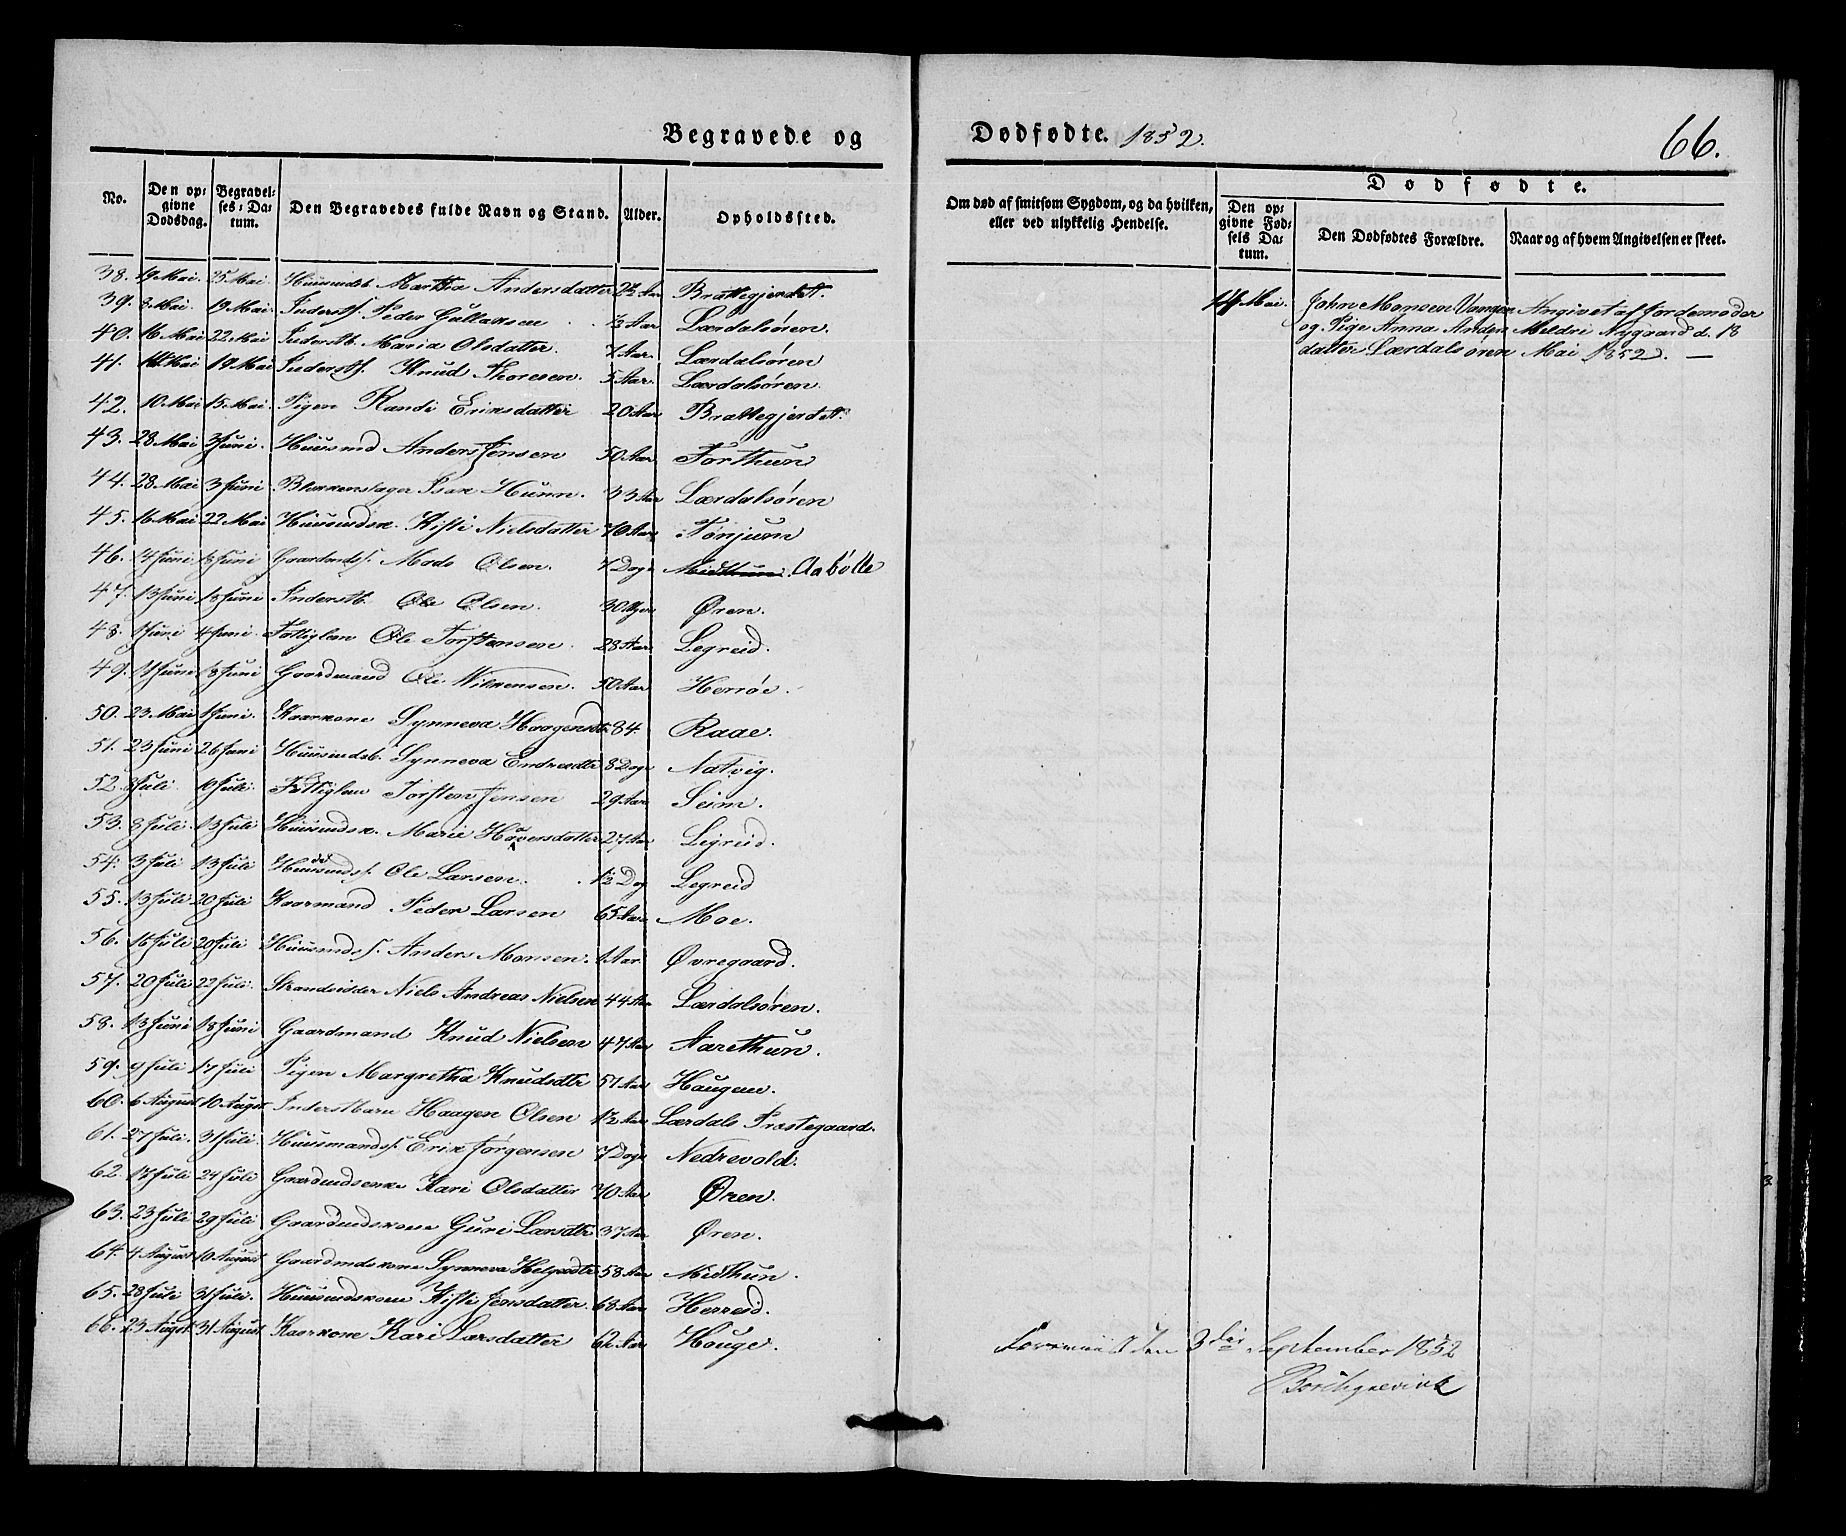 Begravede og
Dødfødte. 1852.
66.
No.
Den opgivne Dødsdag.
Begravelses-Datum.
Den Begravedes fulde Navn og Stand.
Alder.
Opholdssted.
Om død af smitsom Sygdom, og da hvilken, eller ved ulykkelig Hendelse.
Dødfødte.
Den opgivne Fødsels Datum.
Den Dødfødtes Forældre.
Naar og af hvem Angivelsen er skeet.
38. 19 Mai. 25 Mai. Huusmdsb. Martha Andersdatter Aar Brattegjerdet.
39. 8 Mai. 19 Mai. Inderst s. Peder Gullaksen Aar Lærdalsören.
40. 16 Mai 22 Mai Inderstb. Maria Olsdatter. 7 Aar. Lærdalsören
41. Mai 19 Mai Inderst s. Knud Thoresen. 5 Aar. Lærdalsören.
42. 10 Mai 15 Mai. Pigen Randi Eriksdatter 20 Aar Brattegjerdet.
43. 28 Mai 3 Juni. Huusmd Anders Jensen 50 Aar Torthun
44. 28 Mai 3 Juni Blikkenslager Isak Hunn. 33 Aar Lærdalsören
45. 16 Mai 22 Mai Huusmdsk. Kisti Nielsdatter 70 Aar Tønjum
46. 14 Juni 18 Juni Gaardmds s. Mads Olsen. 7 Dage Midthun. Aabölle
47. 13 Juni 18 Juni Inderstb. Ole Olsen. 30 Uger Øren.
48. 1 Juni 4 Juni. Fattiglem Ole Torstensen. 28 Aar. Legreid.
49. 11 Juni 18 Juni Gaardmand Ole Wilkensen. 50 Aar Herröe.
50. 23 Mai 1 Juni. Kaarkone Synneva Haagensdtr 84. Raae.
51. 23 Juni 26 Juni Huusmdsb. Synneva Endresdtr 8 Dage Natvig.
52. 3 Juli. 10 Juli. Fattiglem Torsten Jensen 29 Aar Seim.
53. 8 Juli. 13 Juli Huusmdsk. Marie Haaversdatter 27 Aar Legreid.
54. 3 Juli 13 Juli Huusmds s. Ole Larsen. 12 Dag Legreid
55. 13 Juli 20 Juli Kaarmand Peder Larsen 65 Aar Moe.
56. 16 Juli 20 Juli Huusmds s. Anders Monsen. 1 Aar. Øvregaard.
57. 20 Juli 23 Juli. Strandsidder Niels Andreas Nielsen 44 Aar Lærdalsören.
58. 13 Juni 18 Juni Gaardmand Knud Nielsen 47 Aar Aarethun.
59. 9 Juli 17 Juli Pigen Margretha Knudsdtr 57 Aar Haugen.
60. 6 August 10 Augst. Inderstbarn Haagen Olsen 1½ Aar Lærdals Præstegaard.
61. 27 Juli. 31 Juli. Huusmands s. Erik Jørgensen 7 Dage Nedrevold.
62. 17 Juli 24 Juli Gaardmdsenke Kari Olsdatter 70 Aar. Øren.
63. 23 Juli 29 Juli Gaardmdskone Guri Larsdtr 37 Aar Øren.
64. 4 August 10 August. Gaardmdskone Synneva Helgesdtr 58 Aar Midthun.
65. 28 Juli 31 Juli. Huusmdskone Kisti Jensdatter. 68 Aar. Herreid.
66. 23 Augst 31 August. Kaarkone Kari Larsdatter 62 Aar Houge.
14 Mai. John Monsen Vangen Angivet af Jordemoder
og Pige Anna Anders Meldri Nygaard d. 18
datter Lærdalsören Mai 1852. —
Foreviist den 3die September 1852
Borchgrevink